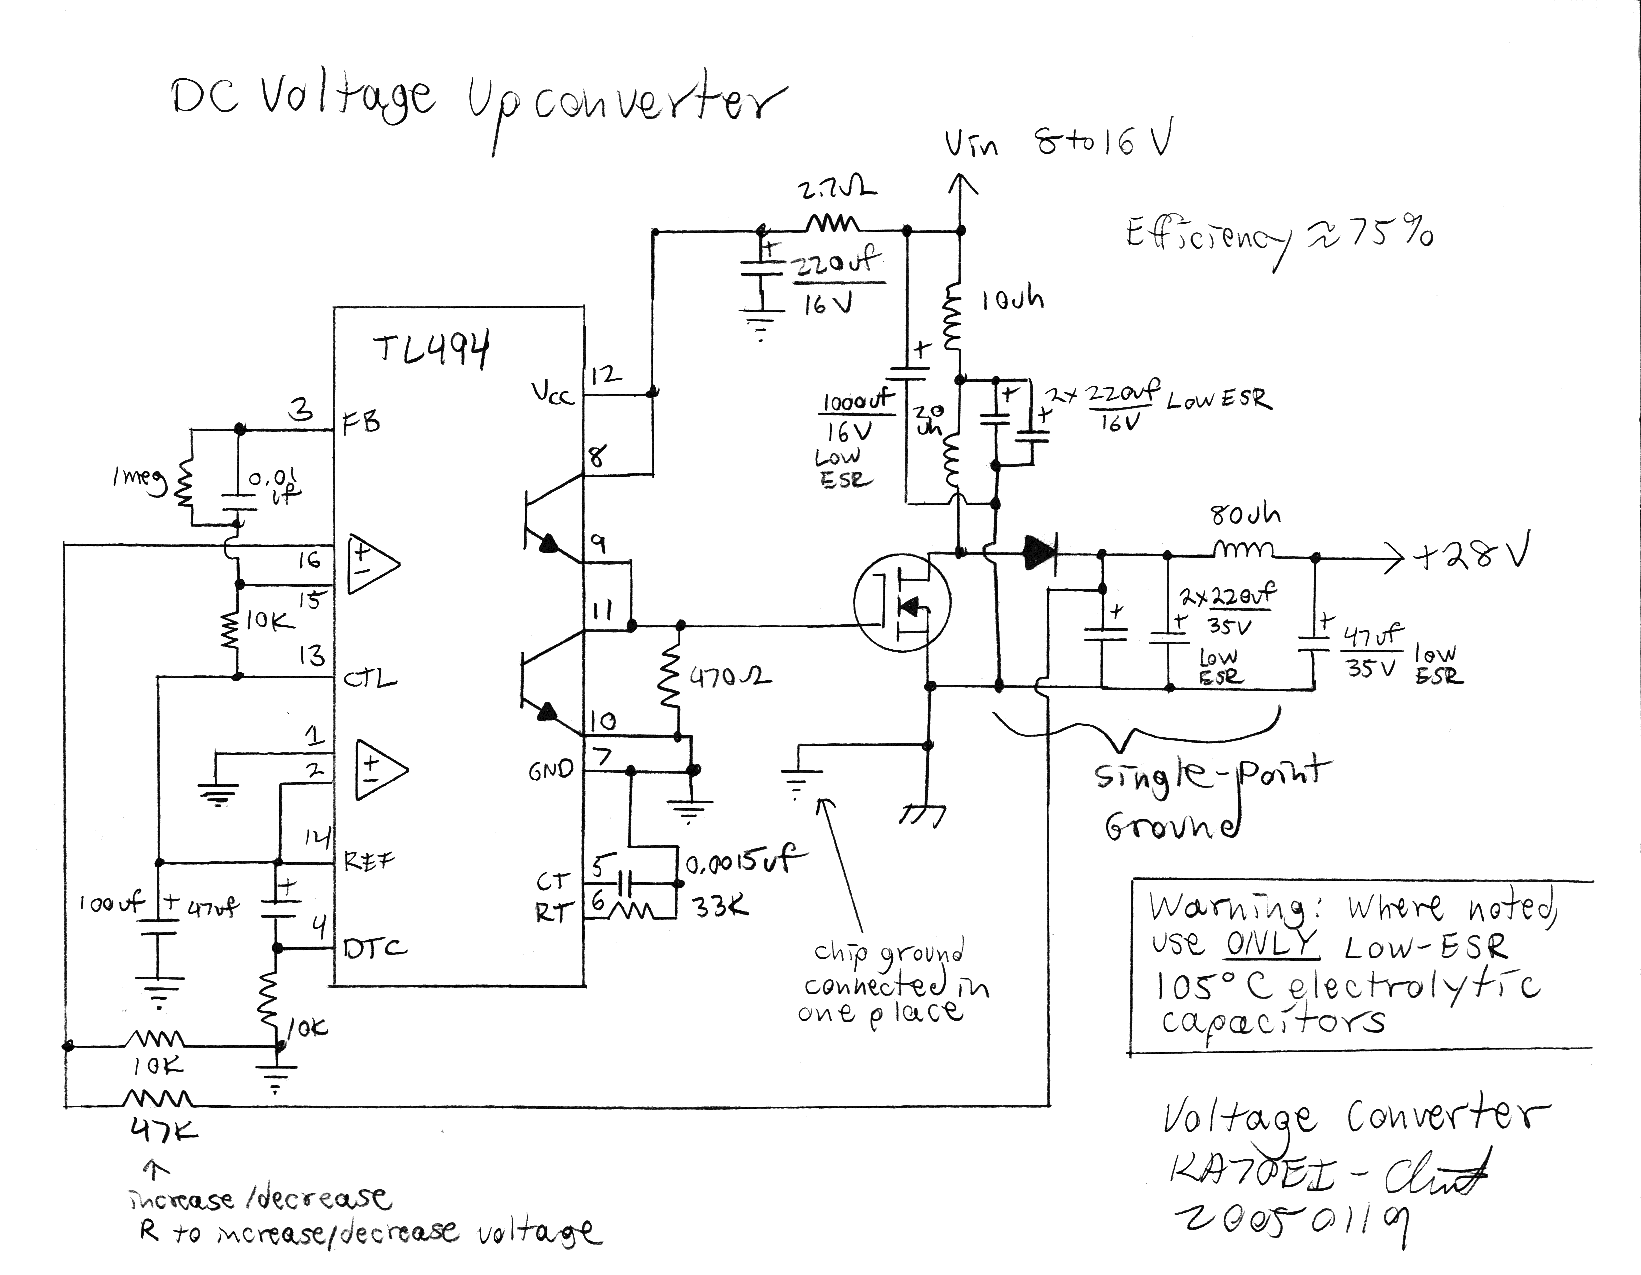 DC Voltage Upconverter
Vin 8 to 16 V
Efficiency ≈ 75%
2.7Ω
+
220uf
16V
10uh
TL494
Vcc
12
+
1000uf
16V
Low
ESR
20
uh
+
+
2x 220uf Low ESR
16V
3
FB
8
1meg
0.01
uf
9
80uh
+28V
16
+
-
15
11
10K
+
+
2x220uf
35V
Low
ESR
+
47uf
35V
low
ESR
13
CTL
470Ω
10
1
2
+
-
7
GND
Single-Point
Ground
14
REF
5
CT
0.0015uf
6
RT
33K
100uf
+
47uf
+
4
DTC
chip ground
connected in
one place
Warning: Where noted,
use ONLY Low-ESR
105°C electrolytic
capacitors
10K
10K
47K
increase/decrease
R to increase/decrease voltage
Voltage Converter
KA7OEI - Clint
20050119